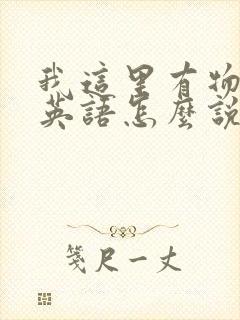 我這里有物
英語怎麼說
箋尺一丈